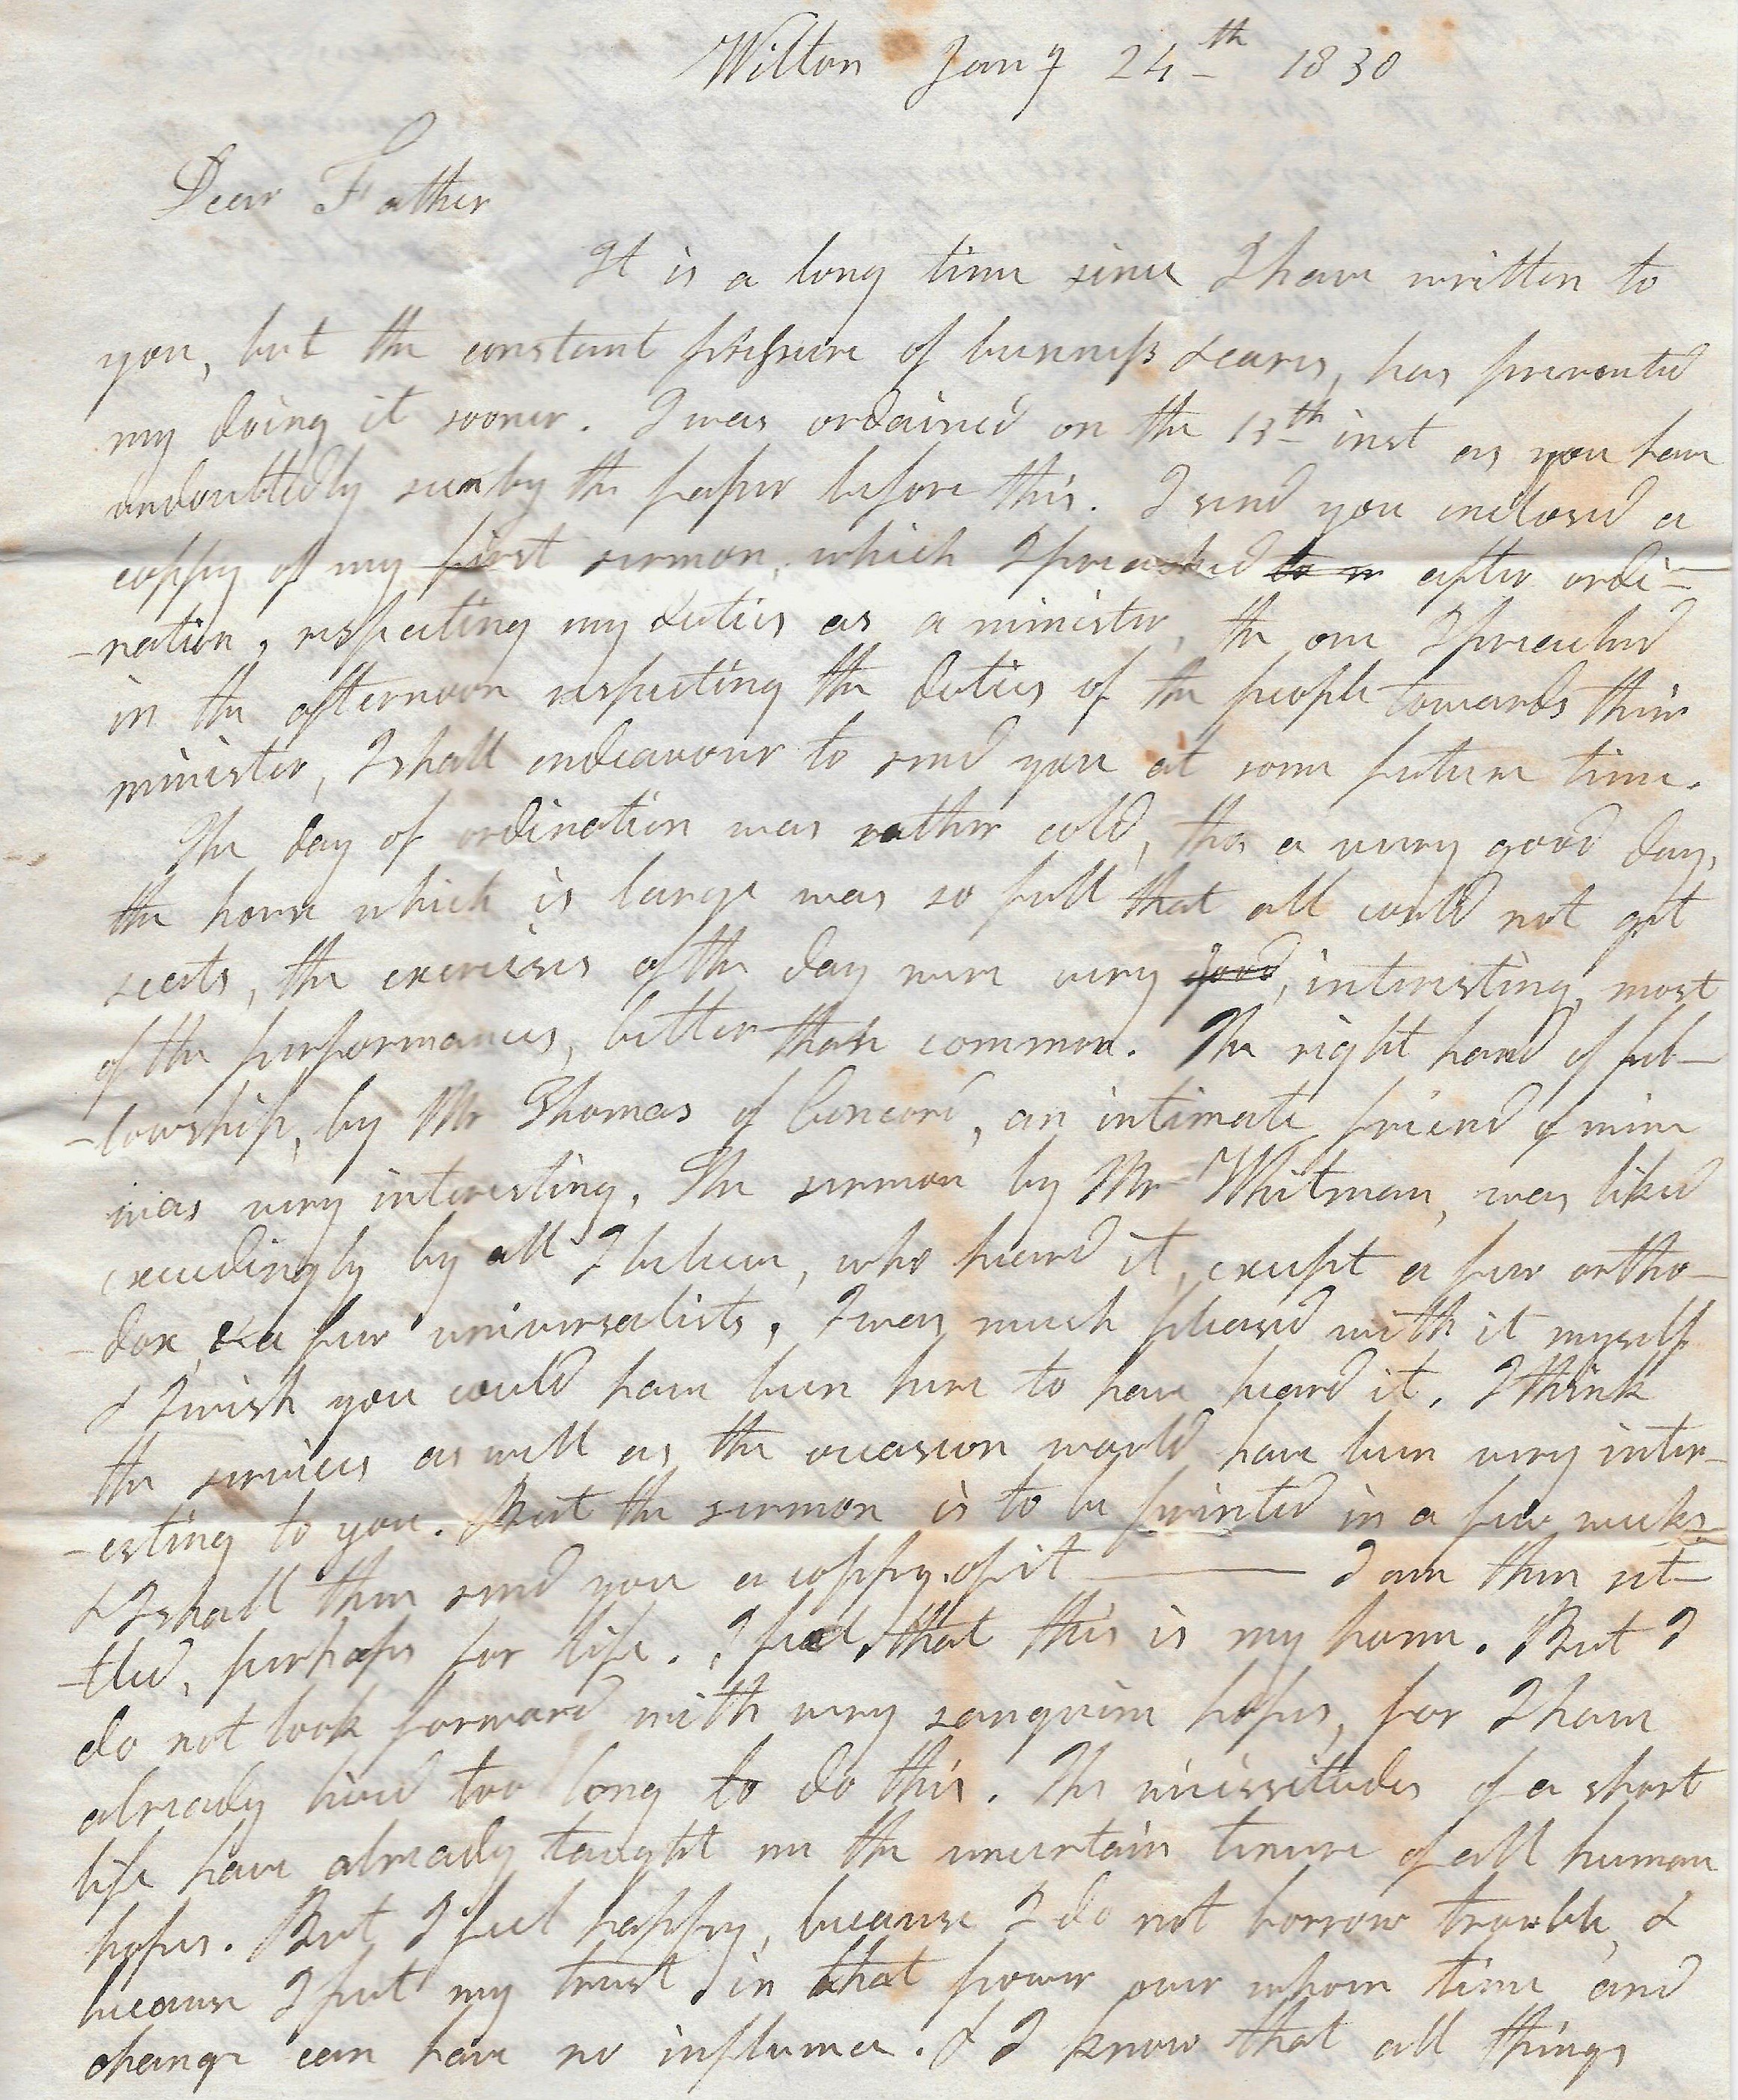 Wilton Jany 24th 1830
Dear Father
It is a long time since I have written to
you, but the constant pressure of business & cares, has prevented
my doing it sooner. I was ordained on the 13th inst as you have
undoubtedly seen by the paper before this. I send you inclosed a
coppy of my first sermon, which I preached to m after ordi-
-nation, respecting my duties as a minister, the one I preached
in the afternoon respecting the duties of the people towards their
minister, I shall endeavour to send you at some future time.
The day of ordination was rather cold, tho, a very good day,
the house which is large was so full that all could not get
seats, the exercises of the day were very good, interesting, most
of the performances, better than common. The right hand of fel-
-lowship, by Mr Thomas of Concord, an intimate friend of mine
was very interesting. The sermon by Mr Whitman, was liked
exceedingly by all I believe, who heard it, except a few ortho-
-dox, & a few universalists. I was much pleased with it myself
& I wish you could have been here to have heard it. I think
the services as well as the occasion would have been very inter-
-esting to you. But the sermon is to be printed in a few weeks
& I shall then send you a coppy of it —— I am then set-
-tled, perhaps for life. I feel, that this is my home. But I
do not look forward with very sanguine hopes, for I have
already lived too long to do this. The vicissitudes of a short
life have already taught me the uncertain tenure of all human
hopes. But I feel happy, because I do not borrow trouble, &
because I put my trust in that power over whom time and
change can have no influence. & I know that all things